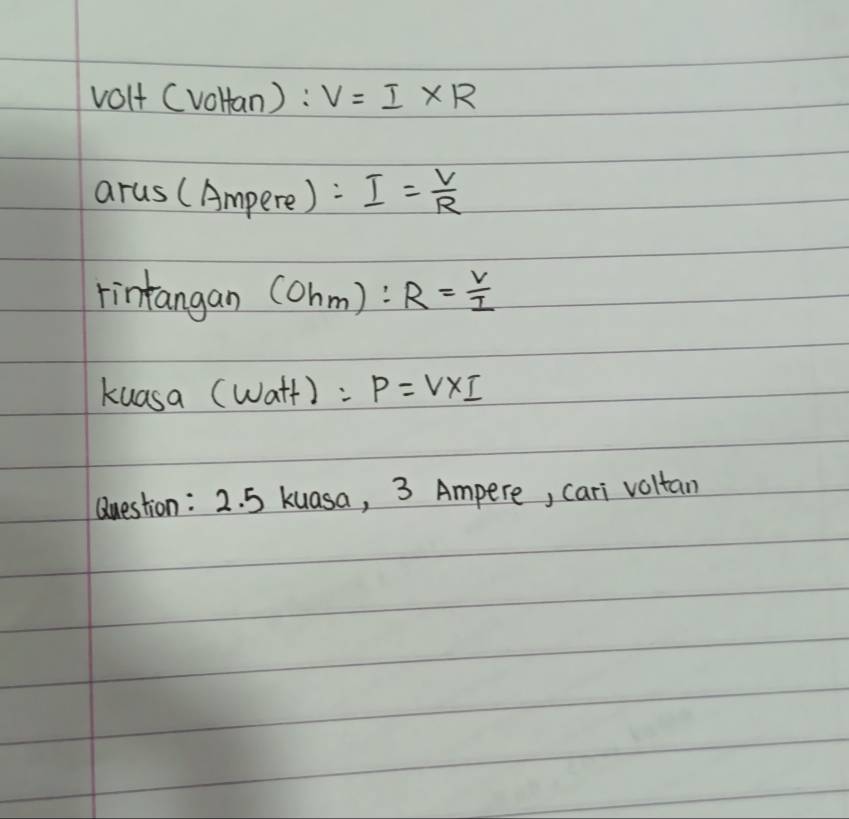 volt (Voltan) : V = I × R
arus (Ampere) : I = V/R
rintangan (Ohm) : R = V/I
kuasa (Watt) : P = V×I
Question: 2.5 kuasa, 3 Ampere, cari voltan